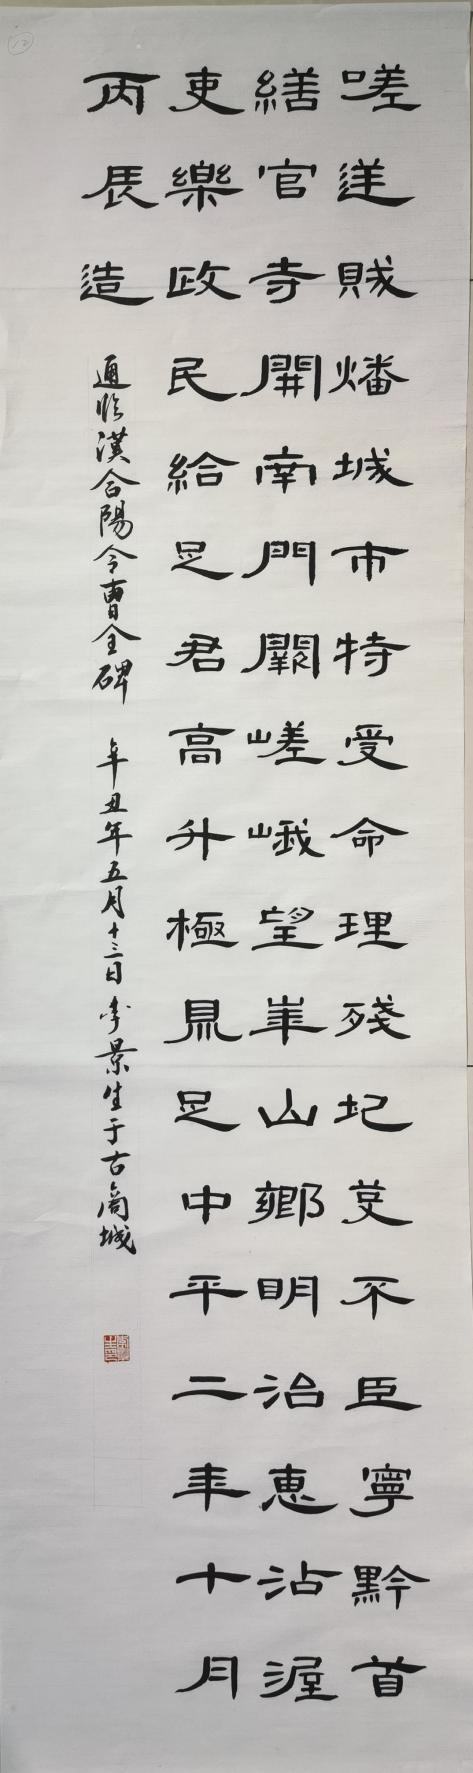 嗟逆賊燔城市特受命理殘圮芟不臣寧黔首
繕官寺開南門闕嵯峨望崋山鄉明治惠沾渥
吏樂政民給足君高升極鼎足中平二年十月
丙辰造
通臨漢合陽令曹全碑 辛丑年五月十三日李景生于古商城